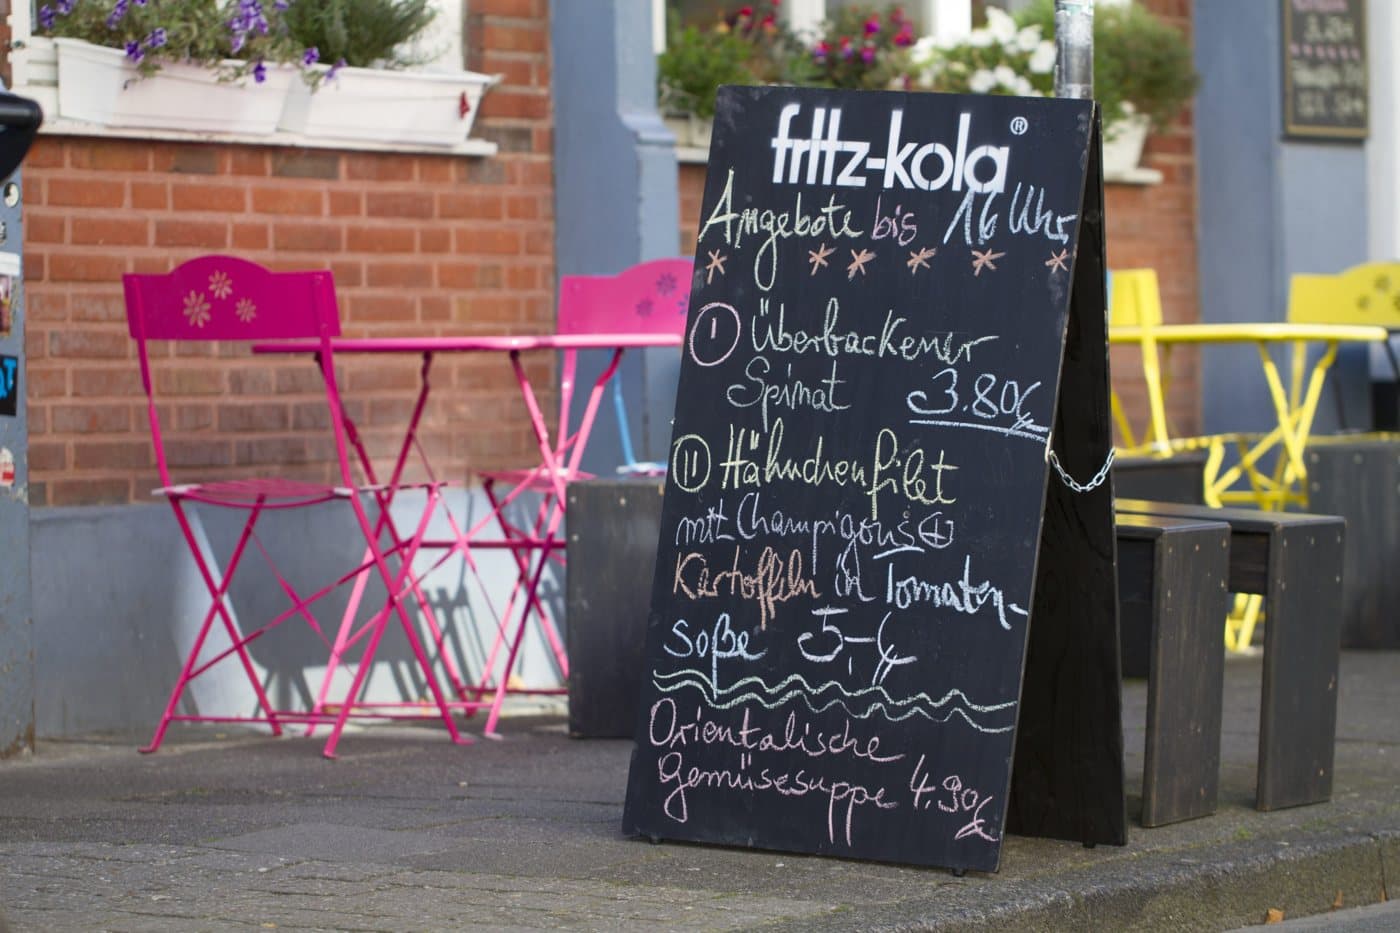 fritz-kola®
Angebote bis 16 Uhr
I Überbackener
Spinat 3.80€
II Hähnchenfilet
mit Champigons +
Kartoffeln in Tomaten-
soße 5,-€
Orientalische
Gemüsesuppe 4.90€